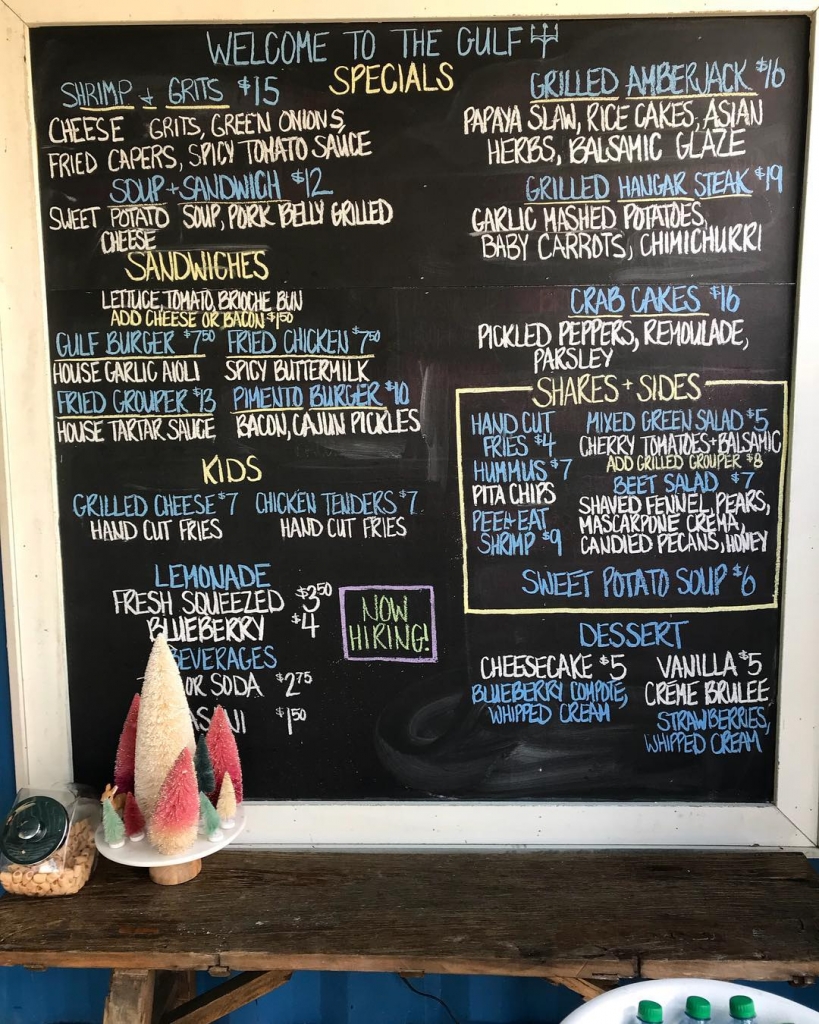 WELCOME TO THE GULF
SPECIALS
SHRIMP + GRITS $15
CHEESE GRITS, GREEN ONIONS,
FRIED CAPERS, SPICY TOMATO SAUCE
SOUP + SANDWICH $12
SWEET POTATO SOUP, PORK BELLY GRILLED
CHEESE
GRILLED AMBERJACK $16
PAPAYA SLAW, RICE CAKES, ASIAN
HERBS, BALSAMIC GLAZE
GRILLED HANGAR STEAK $19
GARLIC MASHED POTATOES,
BABY CARROTS, CHIMICHURRI
CRAB CAKES $16
PICKLED PEPPERS, REMOULADE,
PARSLEY
SANDWICHES
LETTUCE, TOMATO, BRIOCHE BUN
ADD CHEESE OR BACON $1.50
GULF BURGER $7.50
HOUSE GARLIC AIOLI
FRIED CHICKEN $7.50
SPICY BUTTERMILK
FRIED GROUPER $13
HOUSE TARTAR SAUCE
PIMENTO BURGER $10
BACON, CAJUN PICKLES
KIDS
GRILLED CHEESE $7
HAND CUT FRIES
CHICKEN TENDERS $7
HAND CUT FRIES
LEMONADE
FRESH SQUEEZED $3.50
BLUEBERRY $4
BEVERAGES
OR SODA $2.75
$1.50
NOW
HIRING!
SHARES + SIDES
HAND CUT
FRIES $4
HUMMUS $7
PITA CHIPS
PEEL+EAT
SHRIMP $9
MIXED GREEN SALAD $5
CHERRY TOMATOES + BALSAMIC
ADD GRILLED GROUPER $8
BEET SALAD $7
SHAVED FENNEL, PEARS,
MASCARPONE CREMA,
CANDIED PECANS, HONEY
SWEET POTATO SOUP $6
DESSERT
CHEESECAKE $5
BLUEBERRY COMPOTE,
WHIPPED CREAM
VANILLA $5
CRÈME BRULEE
STRAWBERRIES,
WHIPPED CREAM